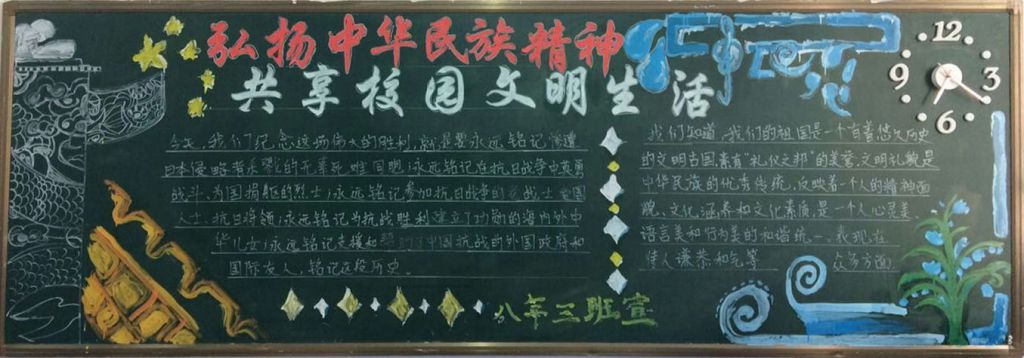 弘扬中华民族精神
共享校园文明生活
今天,我们纪念这场伟大的胜利,就是要永远铭记惨遭
日本侵略者杀戮的无辜死难同胞!永远铭记在抗日战争中英勇
战斗、为国捐躯的烈士!永远铭记参加抗日战争的老战士、爱国
人士、抗日将领!永远铭记为抗战胜利建立了功勋的海内外中
华儿女!永远铭记支援和中国抗战的外国政府和
国际友人,铭记这段历史。
我们知道,我们的祖国是一个有着悠久历史
的文明古国素有"礼仪之邦"的美誉.文明礼貌是
中华民族的优秀传统,反映着一个人的精神面
貌、文化涵养和文化素质,是一个人心灵美、
语言美和行为美的和谐统一、表现在
待人谦恭和气等 众多方面
八年三班宣
12
9
3
6